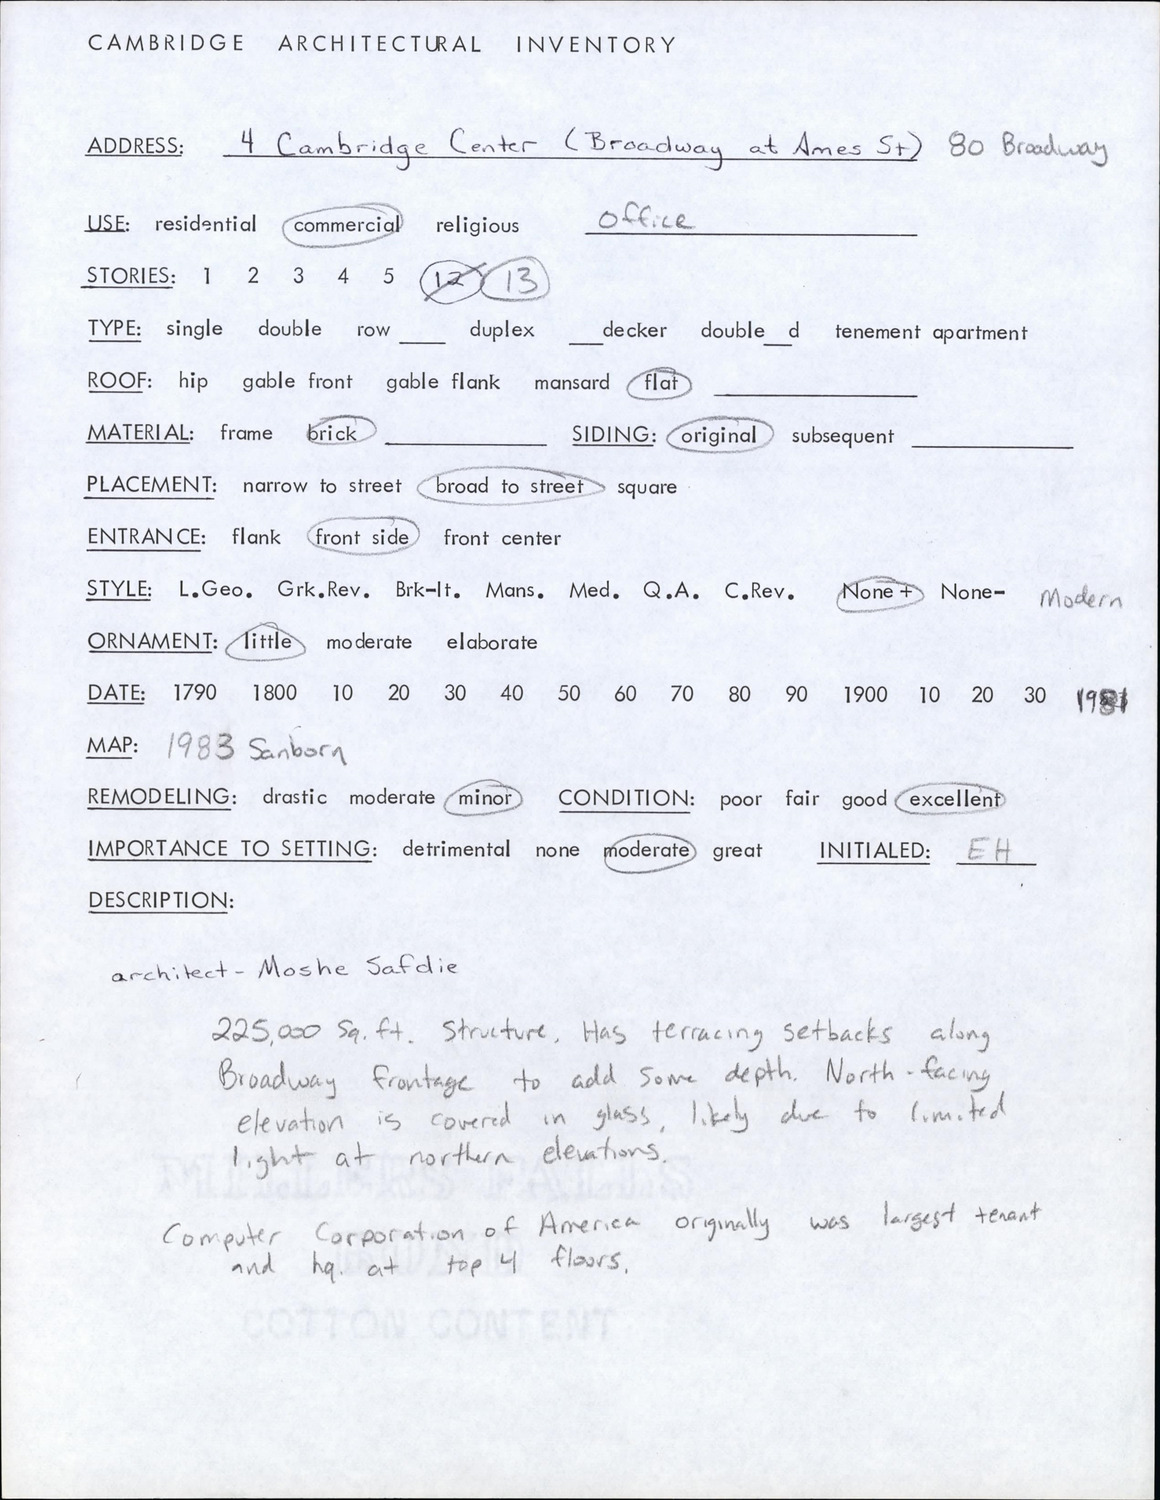 CAMBRIDGE ARCHITECTURAL INVENTORY
ADDRESS: 4 Cambridge Center (Broadway at Ames St) 80 Broadway
USE: residential commercial religious office
STORIES: 1 2 3 4 5 12 13
TYPE: single double row ___ duplex ___decker double__d tenement apartment
ROOF: hip gable front gable flank mansard flat
MATERIAL: frame brick SIDING: original subsequent
PLACEMENT: narrow to street broad to street square
ENTRANCE: flank front side front center
STYLE: L.Geo. Grk.Rev. Brk-It. Mans. Med. Q.A. C.Rev. None+ None- Modern
ORNAMENT: little moderate elaborate
DATE: 1790 1800 10 20 30 40 50 60 70 80 90 1900 10 20 30
MAP: 1983 Sanborn
REMODELING: drastic moderate minor CONDITION: poor fair good excellent
IMPORTANCE TO SETTING: detrimental none moderate great INITIALED: EH
DESCRIPTION:
architect - Moshe Safdie
225,000 Sq. ft. Structure. Has terracing setbacks along
Broadway frontage to add some depth. North-facing
elevation is covered in glass, likely due to limited
light at northern elevations.
Computer Corporation of America originally was largest tenant
and hq. at top 4 floors.
MILLERS FALLS
COTTON CONTENT